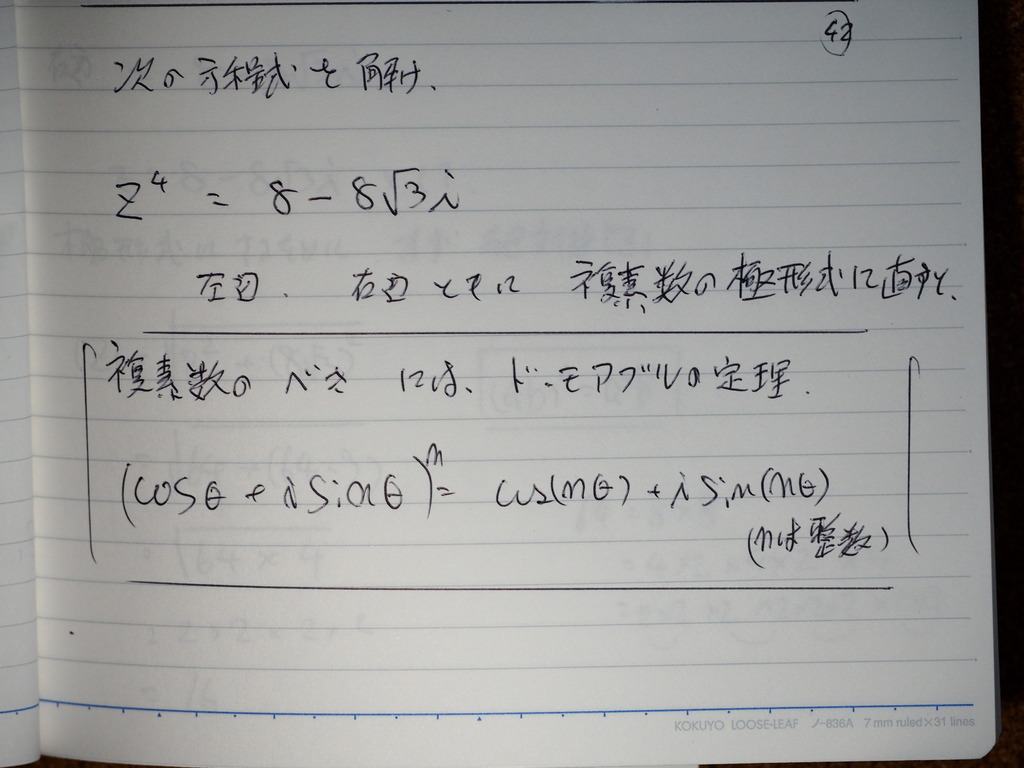 42
次の方程式を解け.
z⁴ = 8 - 8√3i
左辺. 右辺ともに 複素数の極形式に直すと、
複素数の べき には、ド・モアブルの定理.
(cosθ + i sinθ)ⁿ = cos(nθ) + i sin(nθ)
(nは整数)
KOKUYO LOOSE-LEAF ノ-836A 7 mm ruled×31 lines